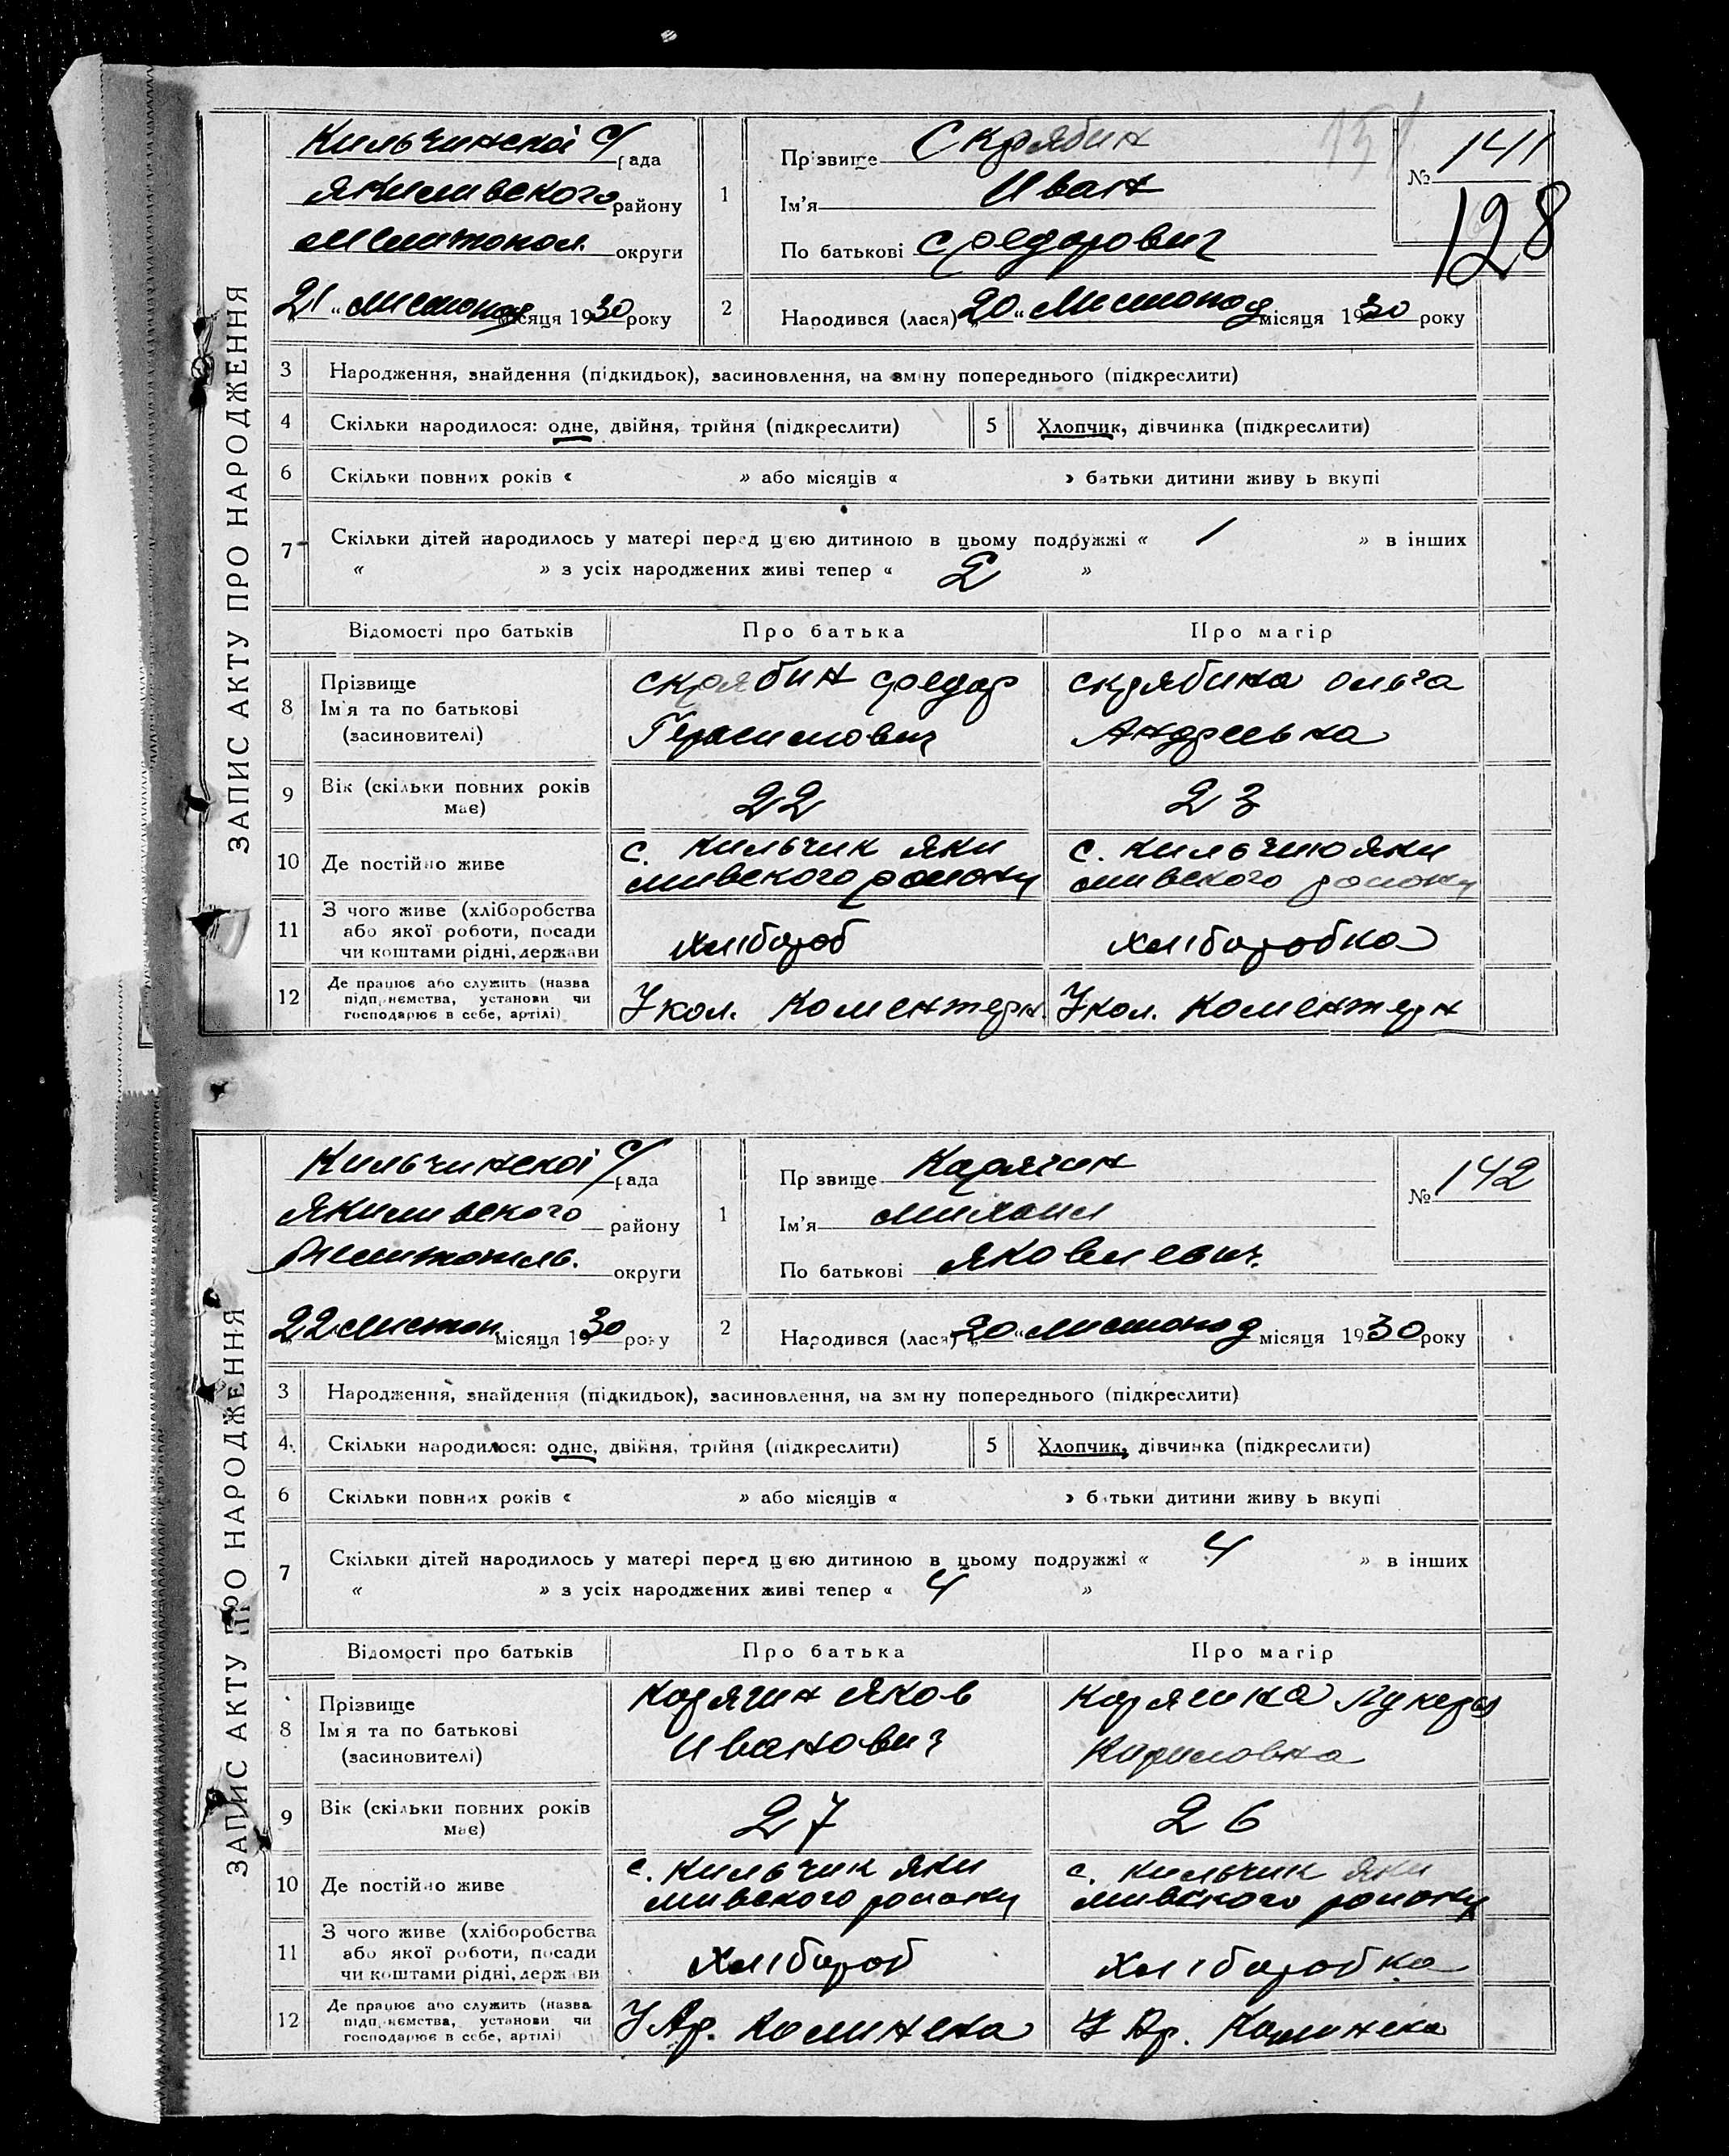 ЗАПИС АКТУ ПРО НАРОДЖЕННЯ
Кильчинскоі с/рада
Якимивского району
Мелитопол. округи
„21“ листопад місяця 1930 року
1
Прізвище Скрябин
Ім'я Иван
По батькові Федорович
151
№ 141
128
2
Народився (лася) „20“ Листопад місяця 1930 року
3 Народження, знайдення (підкидьок), засиновлення, на зміну попереднього (підкреслити)
4 Скільки народилося: одне, двійня, трійня (підкреслити)
5 Хлопчик, дівчинка (підкреслити)
6 Скільки повних років « » або місяців « » батьки дитини живу ь вкупі
7 Скільки дітей народилось у матері перед цією дитиною в цьому подружжі « 1 » в інших
« » з усіх народжених живі тепер « 2 »
Відомості про батьків Про батька Про матір
8 Прізвище
Ім'я та по батькові
(засиновителі)
Скрябин Федор
Герасимович
Скрябина Ольга
Андреевна
9 Вік (скільки повних років
має)
22
23
10 Де постійно живе
с. Кильчик Яки
мивского району
с. Кильчик Яки
мивского району
11 З чого живе (хліборобства
або якої роботи, посади
чи коштами рідні, держави
хлібороб
хліборобка
12 Де працює або служить (назва
підприємства, установи чи
господарює в себе, артілі)
У кол. Коментерн.
У кол. Коментерн
ЗАПИС АКТУ ПРО НАРОДЖЕННЯ
Кильчинскоі с/рада
Якимивского району
Мелитополь. округи
„22 листоп місяця 1930 року
1
Прізвище Карягин
Ім'я Михаил
По батькові Яковлевич.
№ 142
2
Народився (лася) „20“ листопад місяця 1930 року
3 Народження, знайдення (підкидьок), засиновлення, на зміну попереднього (підкреслити)
4. Скільки народилося: одне, двійня, трійня (підкреслити)
5 Хлопчик, дівчинка (підкреслити)
6 Скільки повних років « » або місяців « » батьки дитини живу ь вкупі
7 Скільки дітей народилось у матері перед цією дитиною в цьому подружжі « 4 » в інших
« » з усіх народжених живі тепер « 4 »
Відомості про батьків Про батька Про матір
8 Прізвище
Ім'я та по батькові
(засиновителі)
Карягин Яков
Иванович
Карягина Лукерья
Кириловна
9 Вік (скільки повних років
має)
27
26
10 Де постійно живе
с. Кильчик Яки
мивского району
с. Кильчик Яки
мивского району
11 З чого живе (хліборобства
або якої роботи, посади
чи коштами рідні, держави
хлібороб
хліборобка
12 Де працює або служить (назва
підприємства, установи чи
господарює в себе, артілі)
У Ар. Калинена
У Ар. Калинена